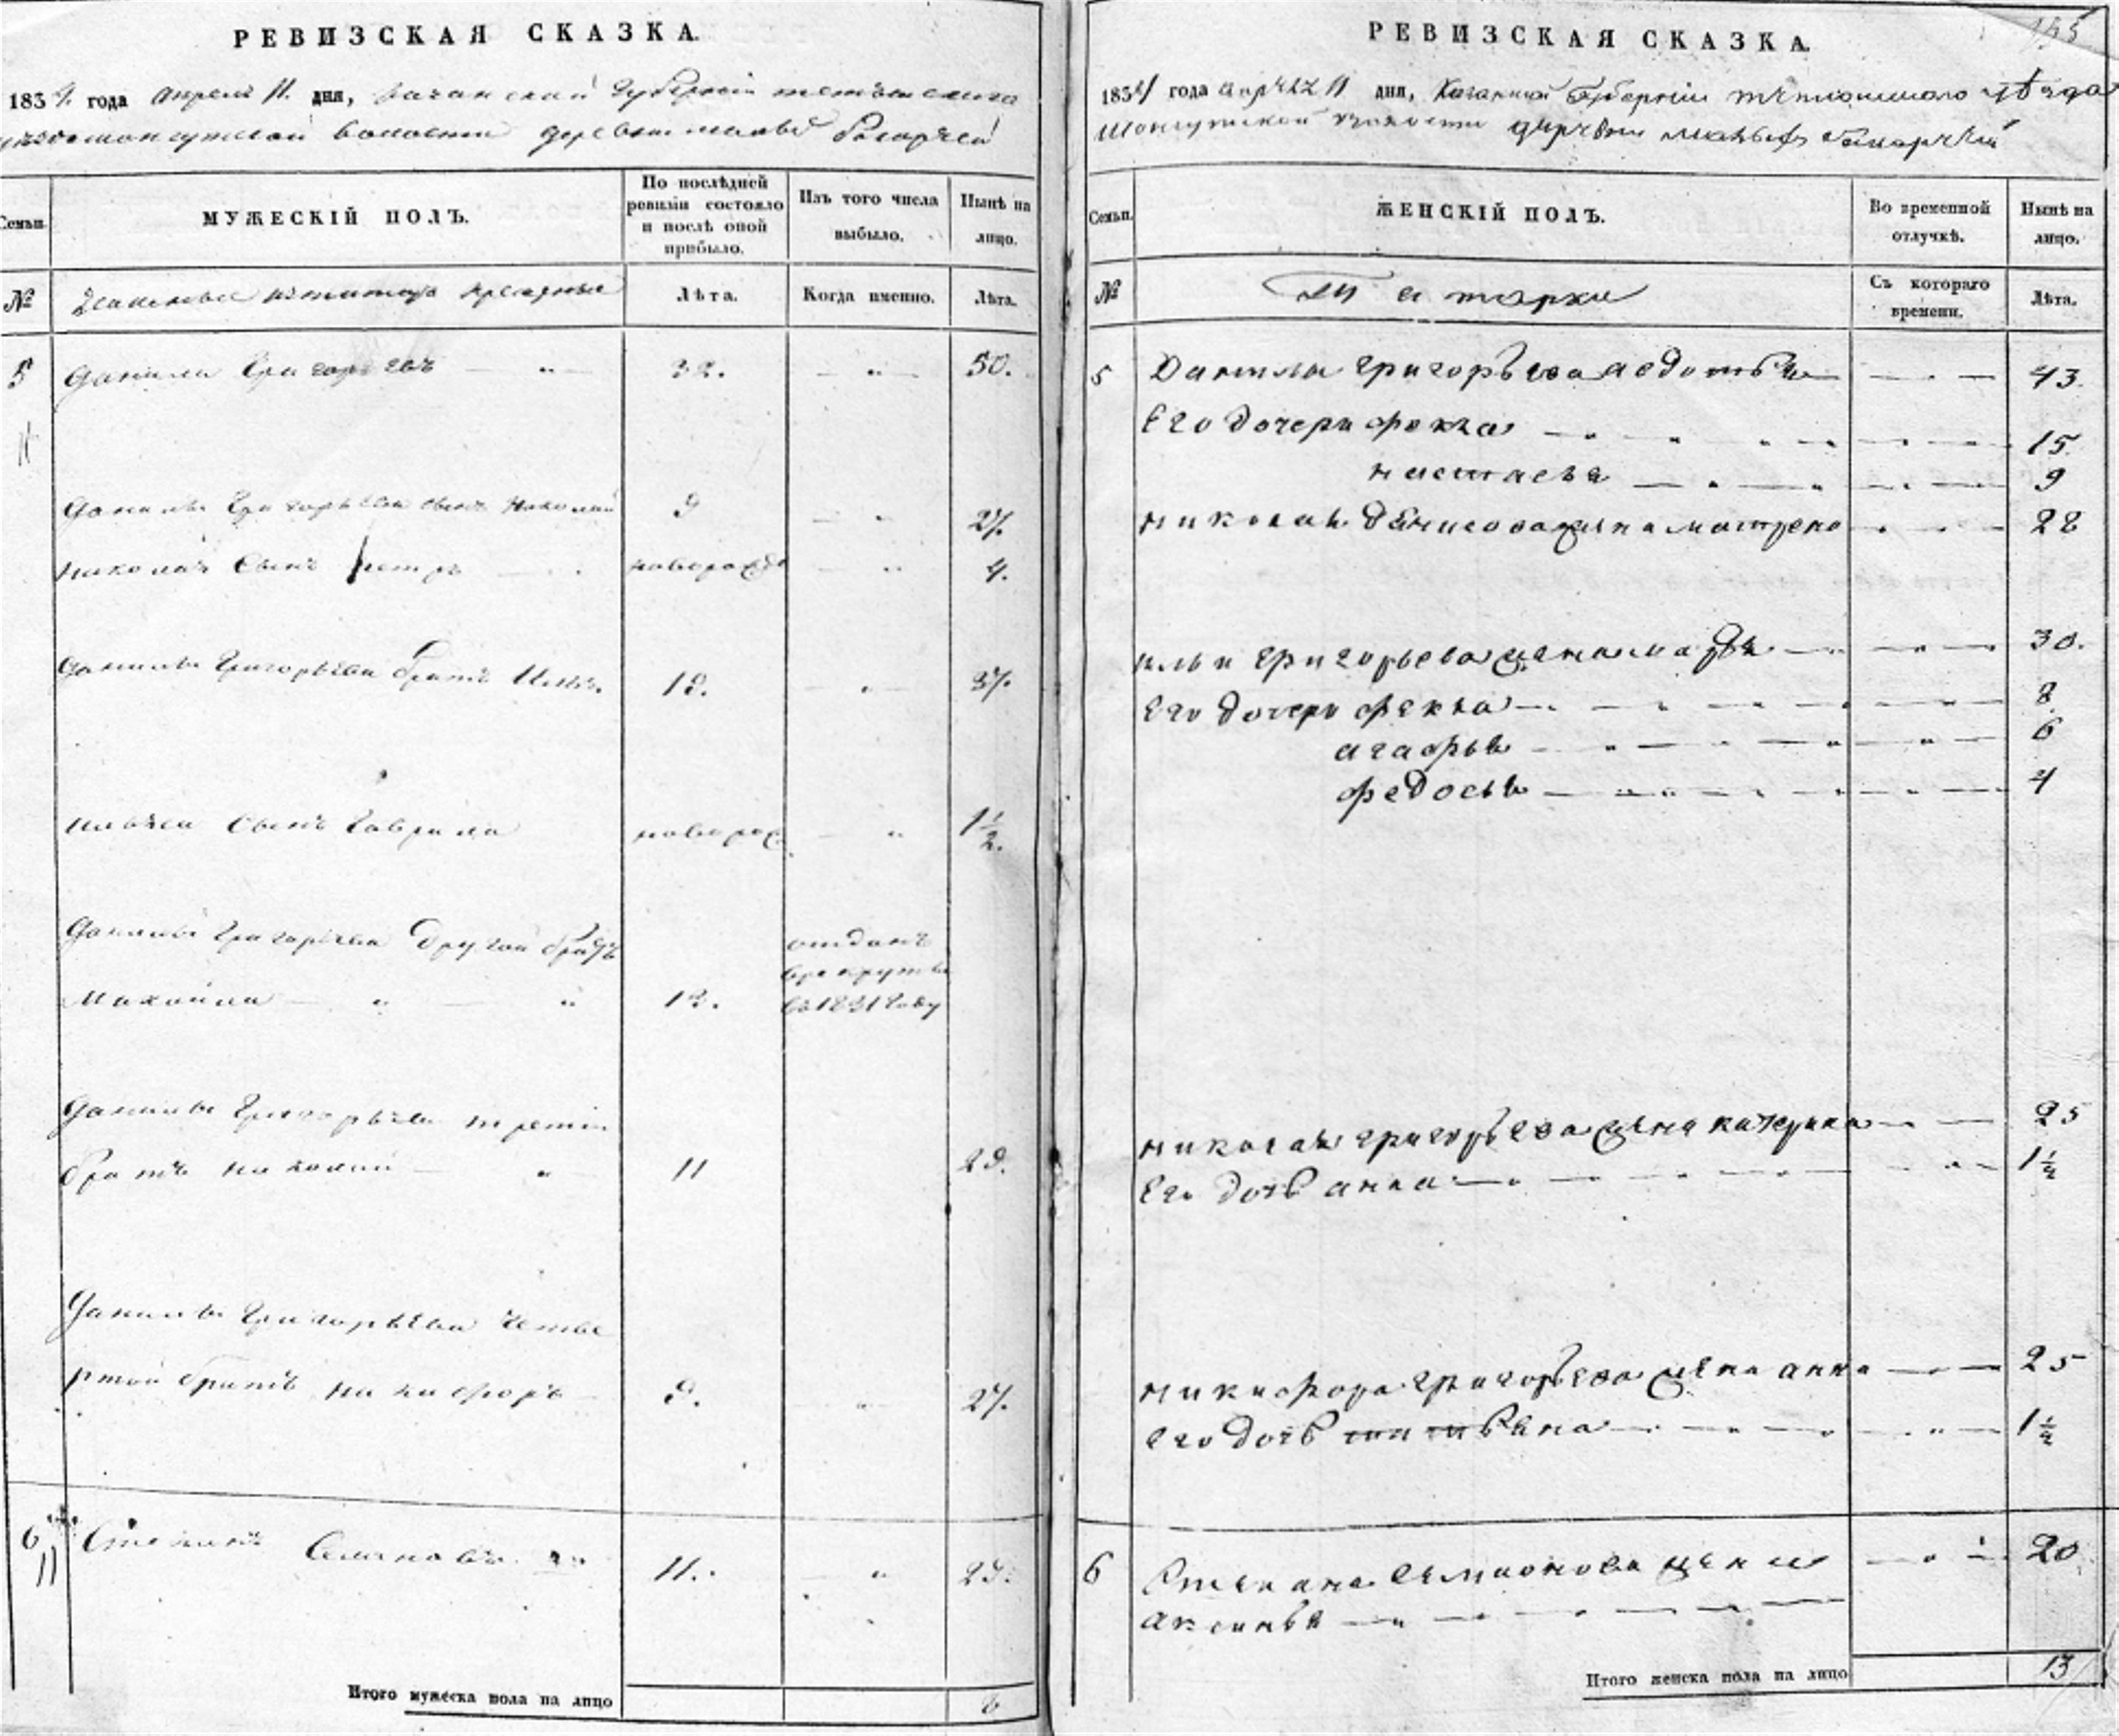 РЕВИЗСКАЯ СКАЗКА.
1834. года апреля 11. дня, Казанской Губернiи тетюшскаго
волости деревни малые
Семьи.
МУЖЕСКIЙ ПОЛЪ.
По послѣдней ревизiи состояло и послѣ оной прибыло.
Изъ того числа выбыло.
Нынѣ на лицо.
№
крещеные
Лѣта.
Когда именно.
Лѣта.
5 Данила Григорьевъ — „ — 32. — „ — 50.
11
Данилы Григорьева сынъ Николай 9 — „ 27.
Николая сынъ Петръ — новорожде — „ 4.
Данилы Григорьева братъ Илья. 18. — „ — 37.
Ильи сынъ Гаврила новорож — „ 1½.
Данилы Григорьева другой братъ отданъ
в рекруты
Михайла — „ — „ 12. въ 1831 году
Данилы Григорьева третiй
братъ николай — „ 11 29.
Данилы Григорьева четве
ртой братъ никифоръ 9. — „ — 27.
6 Степанъ Семеновъ 11. — „ 29.
11
Итого мужеска пола на лицо 8
РЕВИЗСКАЯ СКАЗКА.
195
1834 года апреля 11 дня, Казанской Губернiи тетюшскаго уѣзда
волости деревни малые
Семьи.
ЖЕНСКIЙ ПОЛЪ.
Во временной отлучкѣ.
Нынѣ на лицо.
№
Татарки
Съ котораго времени.
Лѣта.
5 Данилы григорьева авдотья — — — 43.
Его дочери фекла — „ 15.
настасья — „ — 9
николая денисова жена матрена — „ — 28
ильи григорьева жена марья — „ — 30.
Его дочери фекла — „ — 8
агафья — „ — 6
федосья — „ — 4
николая григорьева жена катерина — „ — 25
Его дочь анна — „ — 1½
никифора григорьева жена анна — „ — 25
его дочь татьяна — „ — 1½
6 Степана семионова жена — „ — 20
аксинья — „ —
Итого женска пола на лицо 13